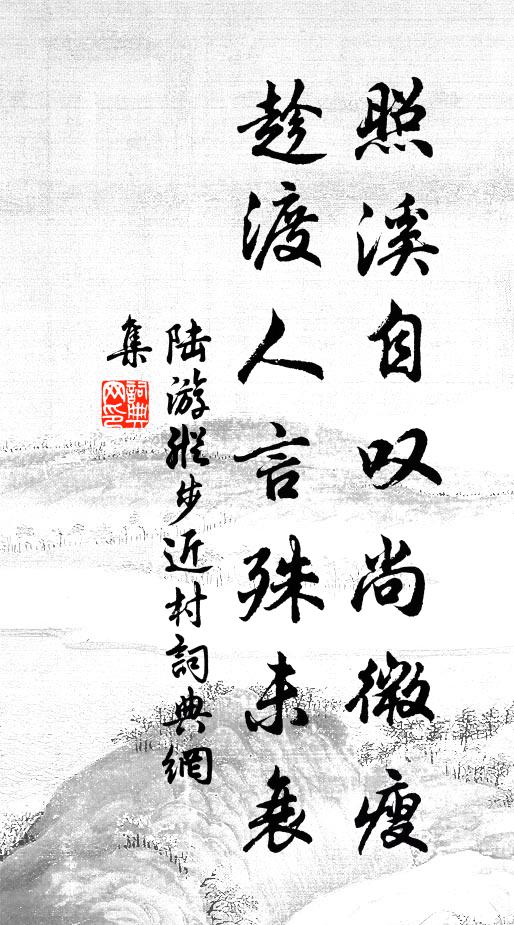 照溪自叹尚微瘦
趁渡人言殊未衰
陆游縱步近村詞典網
集
詞典网印